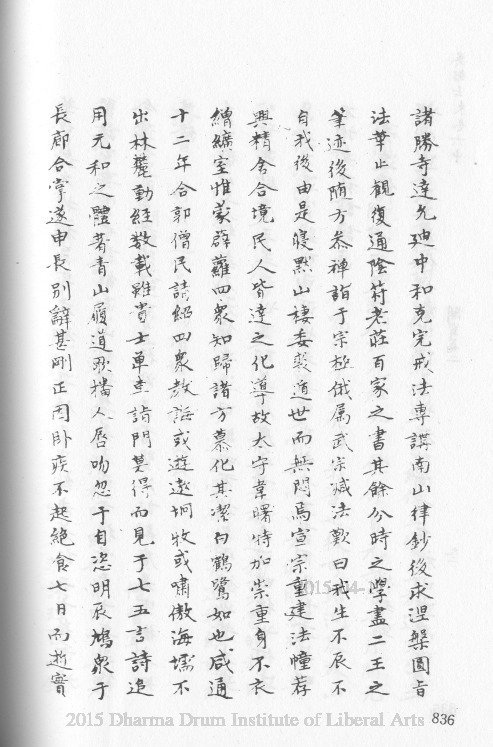 諸勝寺達允廸中和克完戒法專講南山律鈔後求涅槃圓旨
法華止觀復通陰符老莊百家之書其餘分時之學盡二王之
筆迹後随方叅禪詣于宗極俄属武宗滅法歎曰我生不辰不
自我後由是寝默山棲委裘遁世而無悶焉宣宗重建法幢荐
興精舍合境民人皆達之化導故太守韋曙特加崇重身不衣
繒纊室惟蒙薜蘿四衆知歸諸方慕化其潔白鶴鷺如也咸通
十二年合郭僧民請紹四衆教誨或遊遨坰牧或嘯傲海壖不
出林麓動經數載雖貴士單車詣門莫得而見于七五言詩追
用元和之體著青山履道歌播人唇吻忽于自恣明辰鳩衆于
長廊合掌遂申長別辭甚剛正因卧疾不起絶食七日而逝實
2015 Dharma Drum Institute of Liberal Arts 836